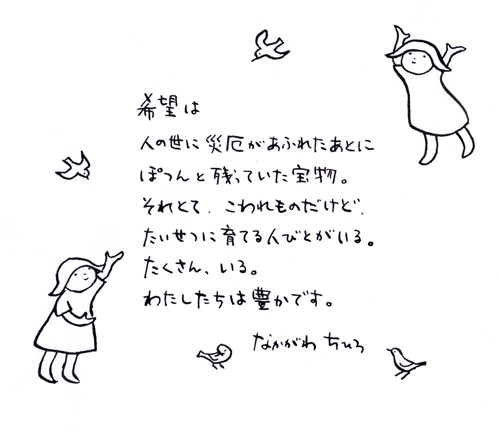 希望は
人の世に災厄があふれたあとに
ぽつんと残っていた宝物。
それとて、こわれものだけど、
たいせつに育てる人びとがいる。
たくさん、いる。
わたしたちは豊かです。
なかがわ ちひろ